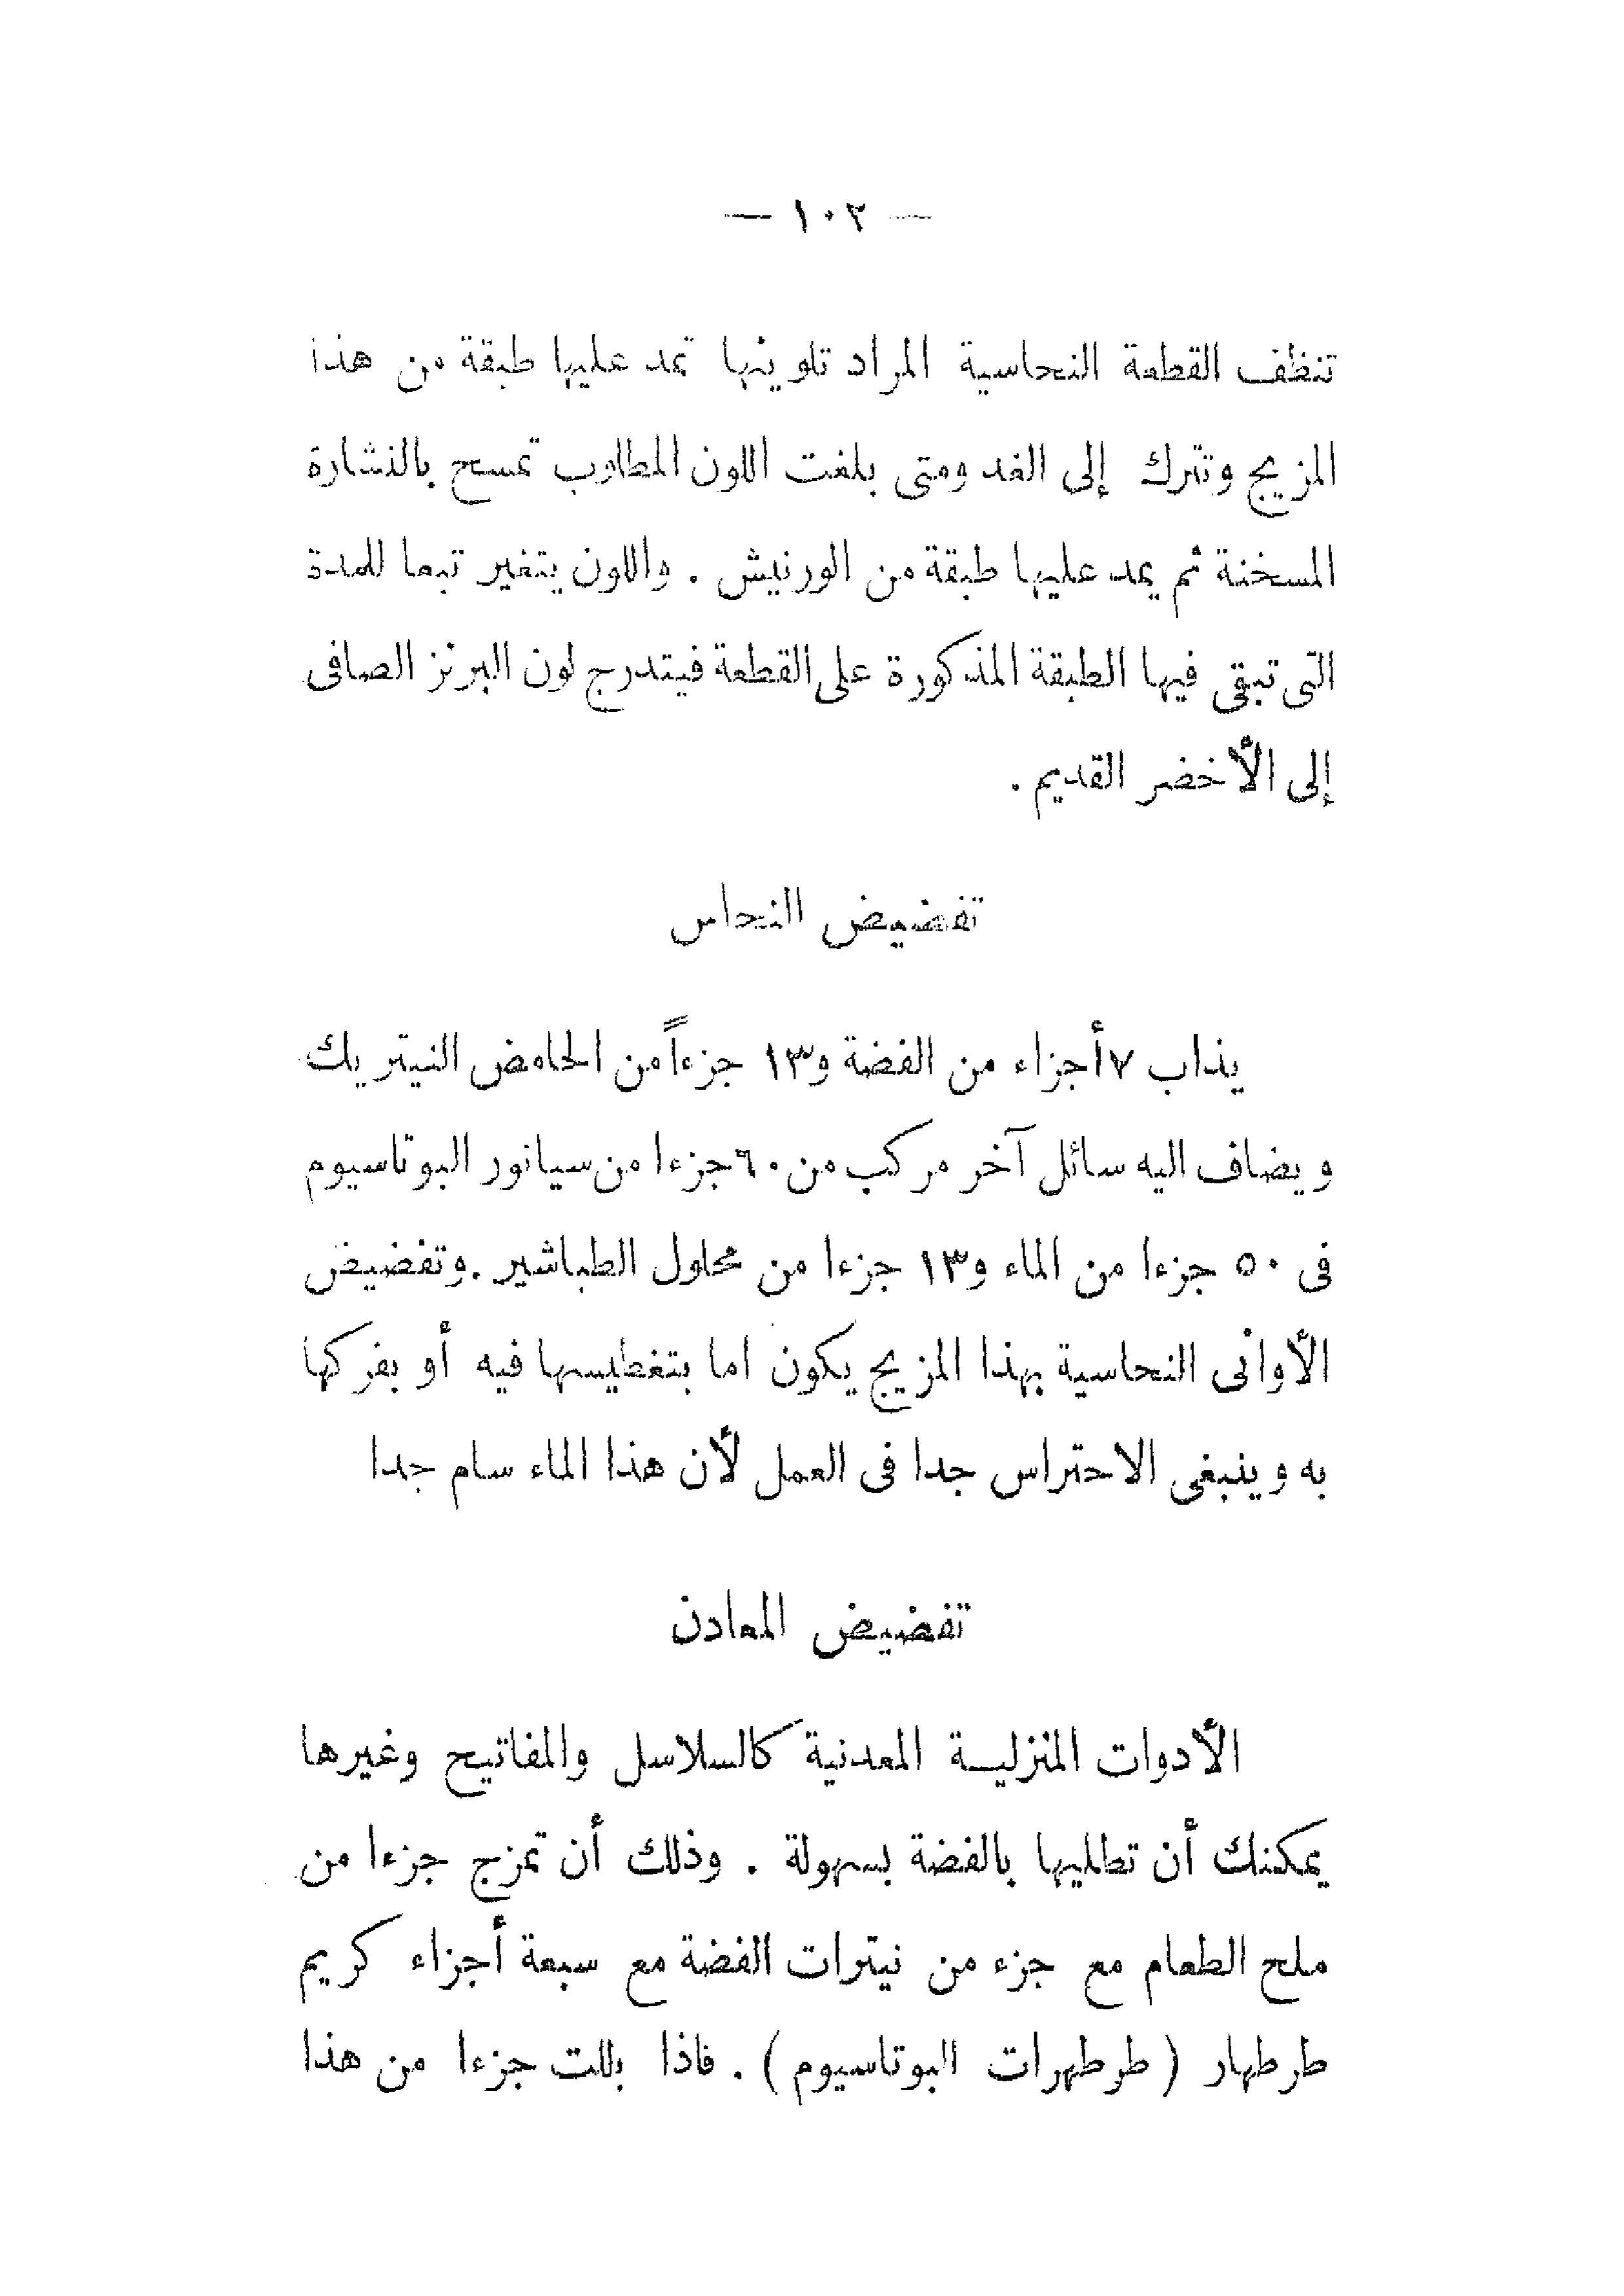 — ١٠٢ —
تنظف القطعة النحاسية المراد تلوينها تمد عليها طبقة من هذا
المزيج وتترك إلى الغد ومتى بلغت اللون المطلوب تمسح بالنشارة
المسخنة ثم يمد عليها طبقة من الورنيش . واللون يتغير تبعا للمدة
التى تبقى فيها الطبقة المذكورة على القطعة فيتدرج لون البرنز الصافى
إلى الأخضر القديم .
تفضيض النحاس
يذاب ٧ أجزاء من الفضة و١٣ جزءاً من الحامض النيتريك
ويضاف اليه سائل آخر مركب من ٦٠ جزءا من سيانور البوتاسيوم
فى ٥٠ جزءا من الماء و١٣ جزءا من محلول الطباشير . وتفضيض
الأوانى النحاسية بهذا المزيج يكون اما بتغطيسها فيه أو بفركها
به وينبغى الاحتراس جدا فى العمل لأن هذا الماء سام جدا
تفضيض المعادن
الأدوات المنزليــة المعدنية كالسلاسل والمفاتيح وغيرها
يمكنك أن تطليها بالفضة بسهولة . وذلك أن تمزج جزءا من
ملح الطعام مع جزء من نيترات الفضة مع سبعة أجزاء كريم
طرطهار ( طرطهرات البوتاسيوم ) . فاذا بللت جزءا من هذا